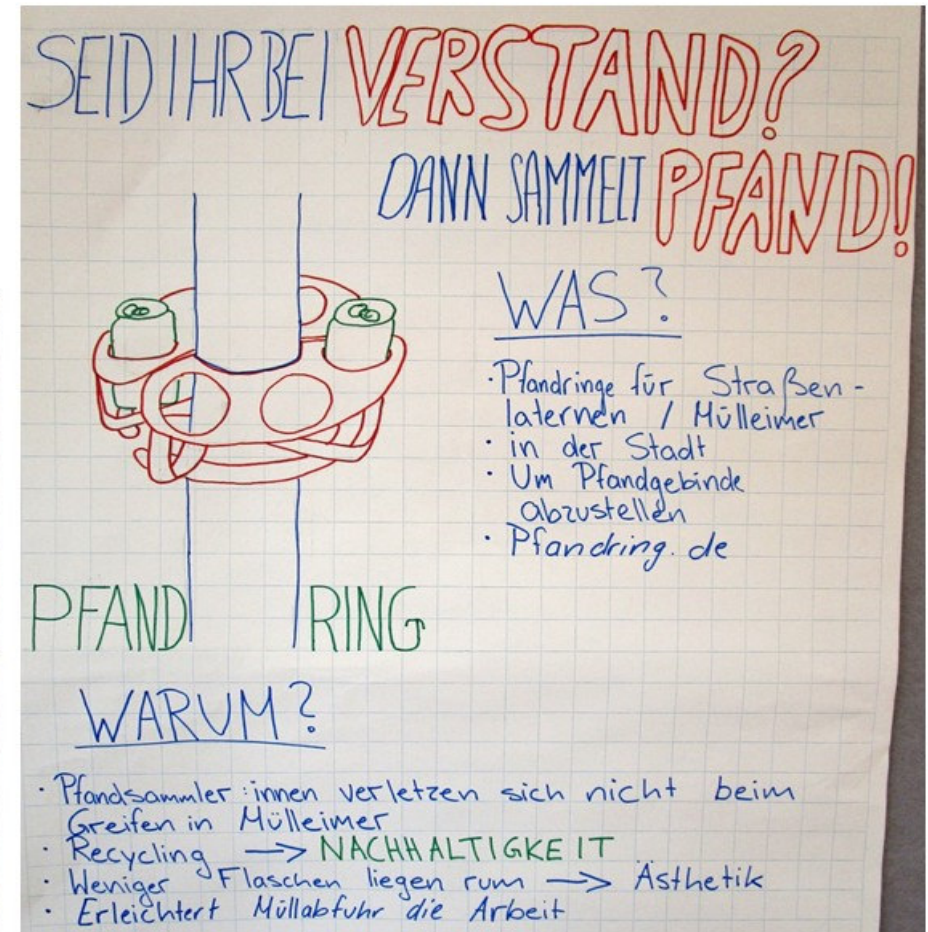 SEID IHR BEI VERSTAND?
DANN SAMMELT PFAND!
WAS?
· Pfandringe für Straßen-
laternen / Mülleimer
· in der Stadt
· Um Pfandgebinde
abzustellen
· Pfandring.de
PFAND RING
WARUM?
· Pfandsammler:innen verletzen sich nicht beim
Greifen in Mülleimer
· Recycling → NACHHALTIGKEIT
· Weniger Flaschen liegen rum → Ästhetik
· Erleichtert Müllabfuhr die Arbeit